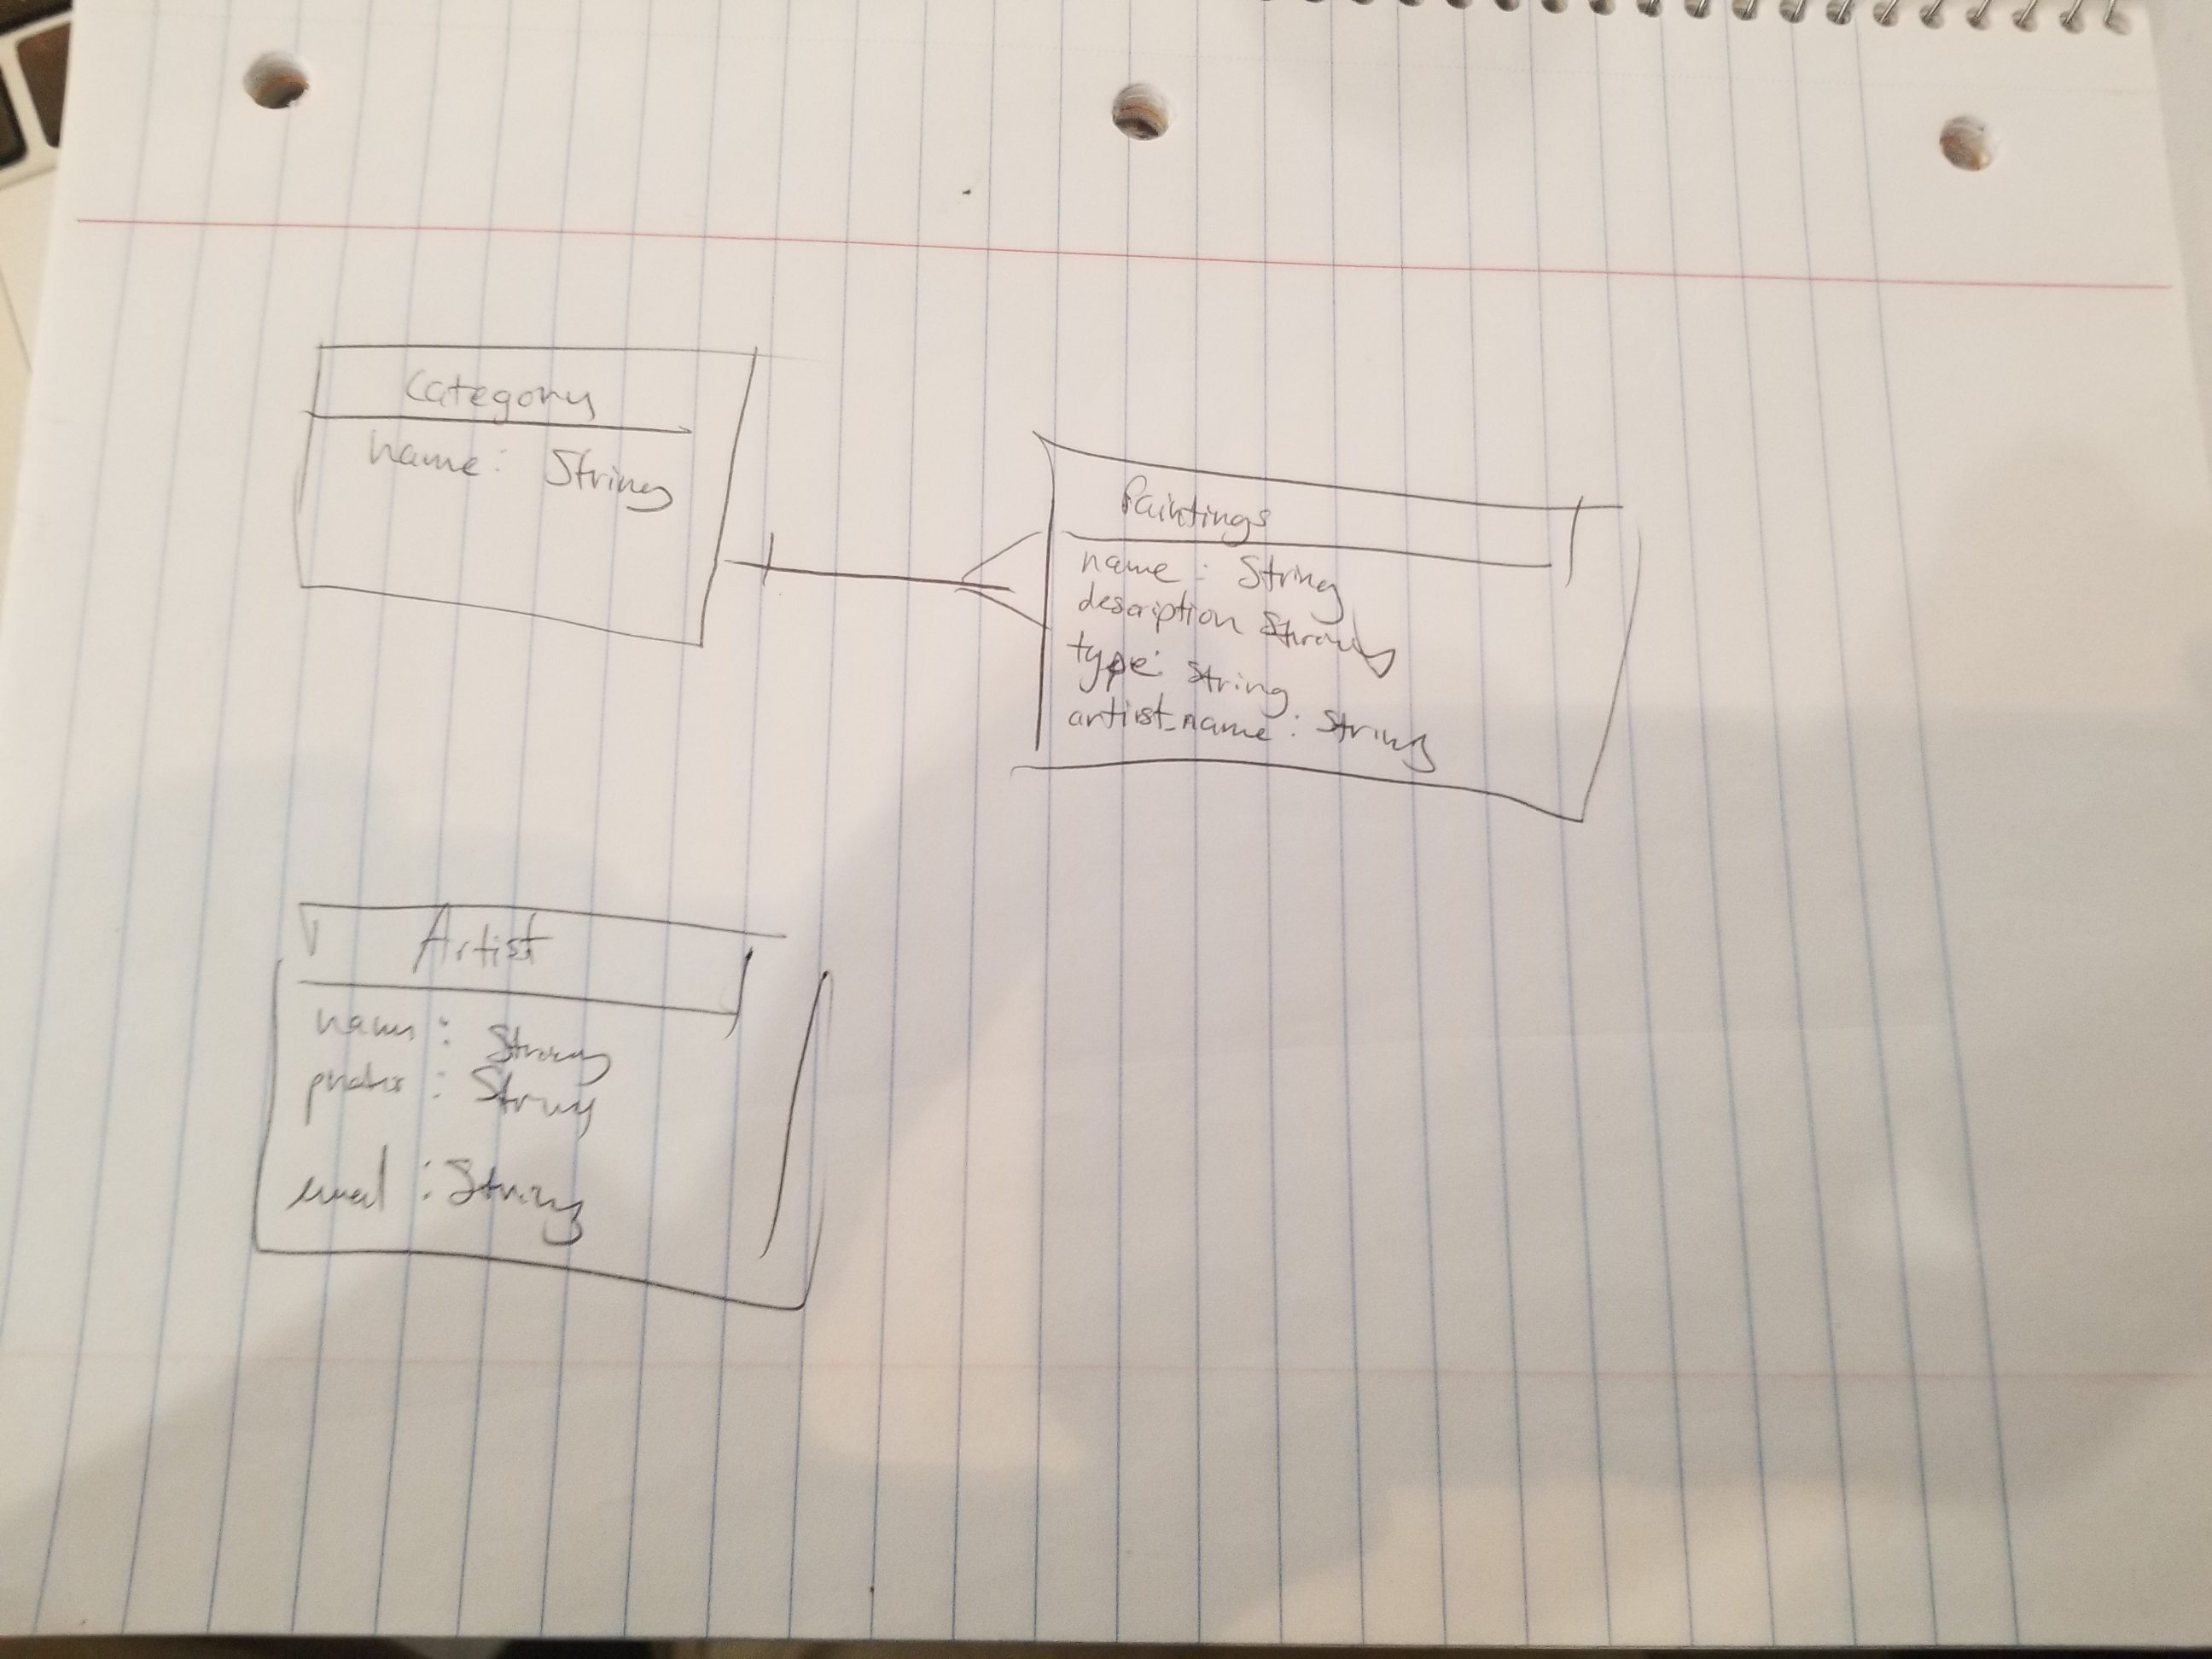 Category
name: String
Paintings
name: String
description String
type: String
artist_name: String
Artist
name: String
: String
email: String